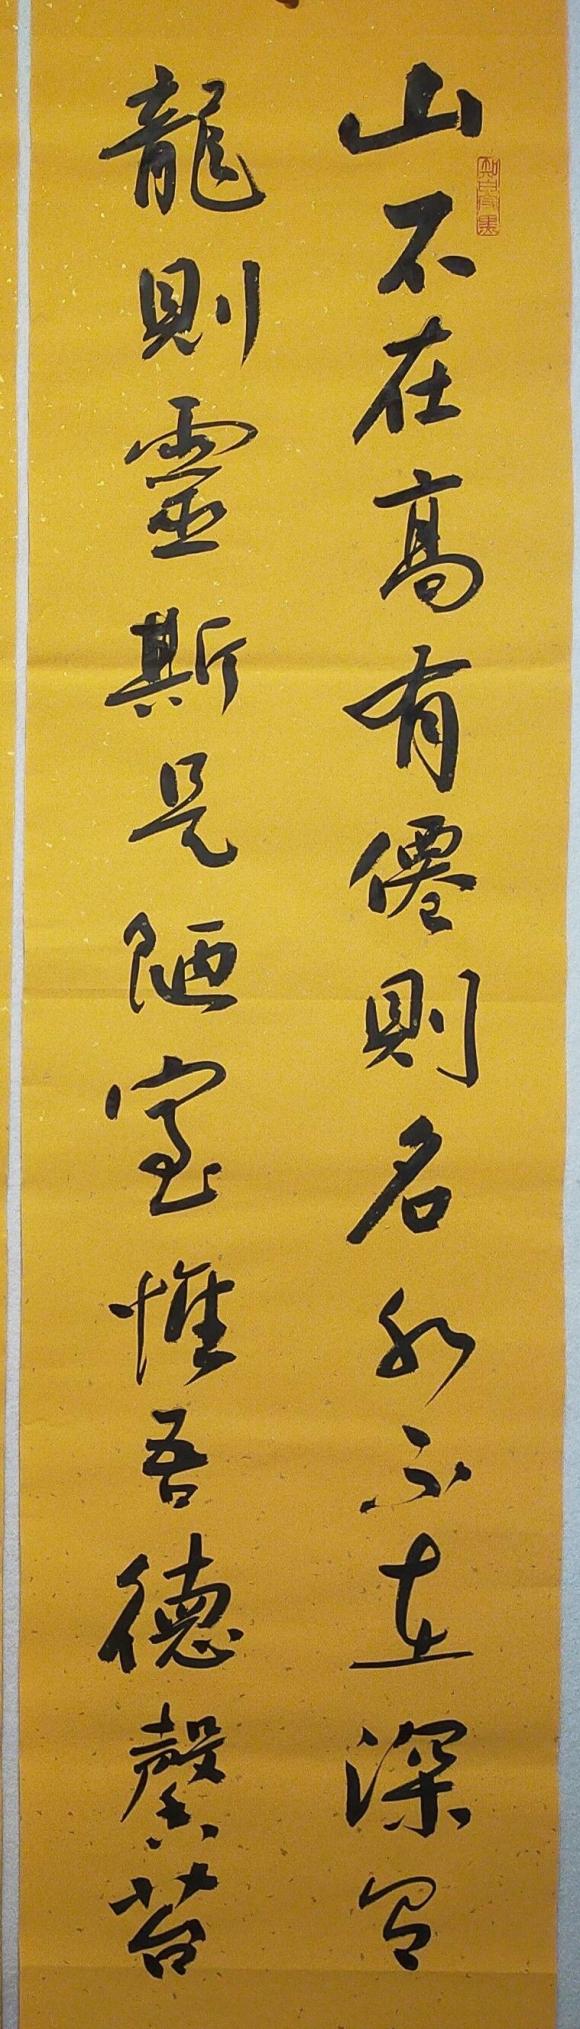 山不在高有僊則名水不在深有
龍則靈斯是陋室惟吾德馨苔